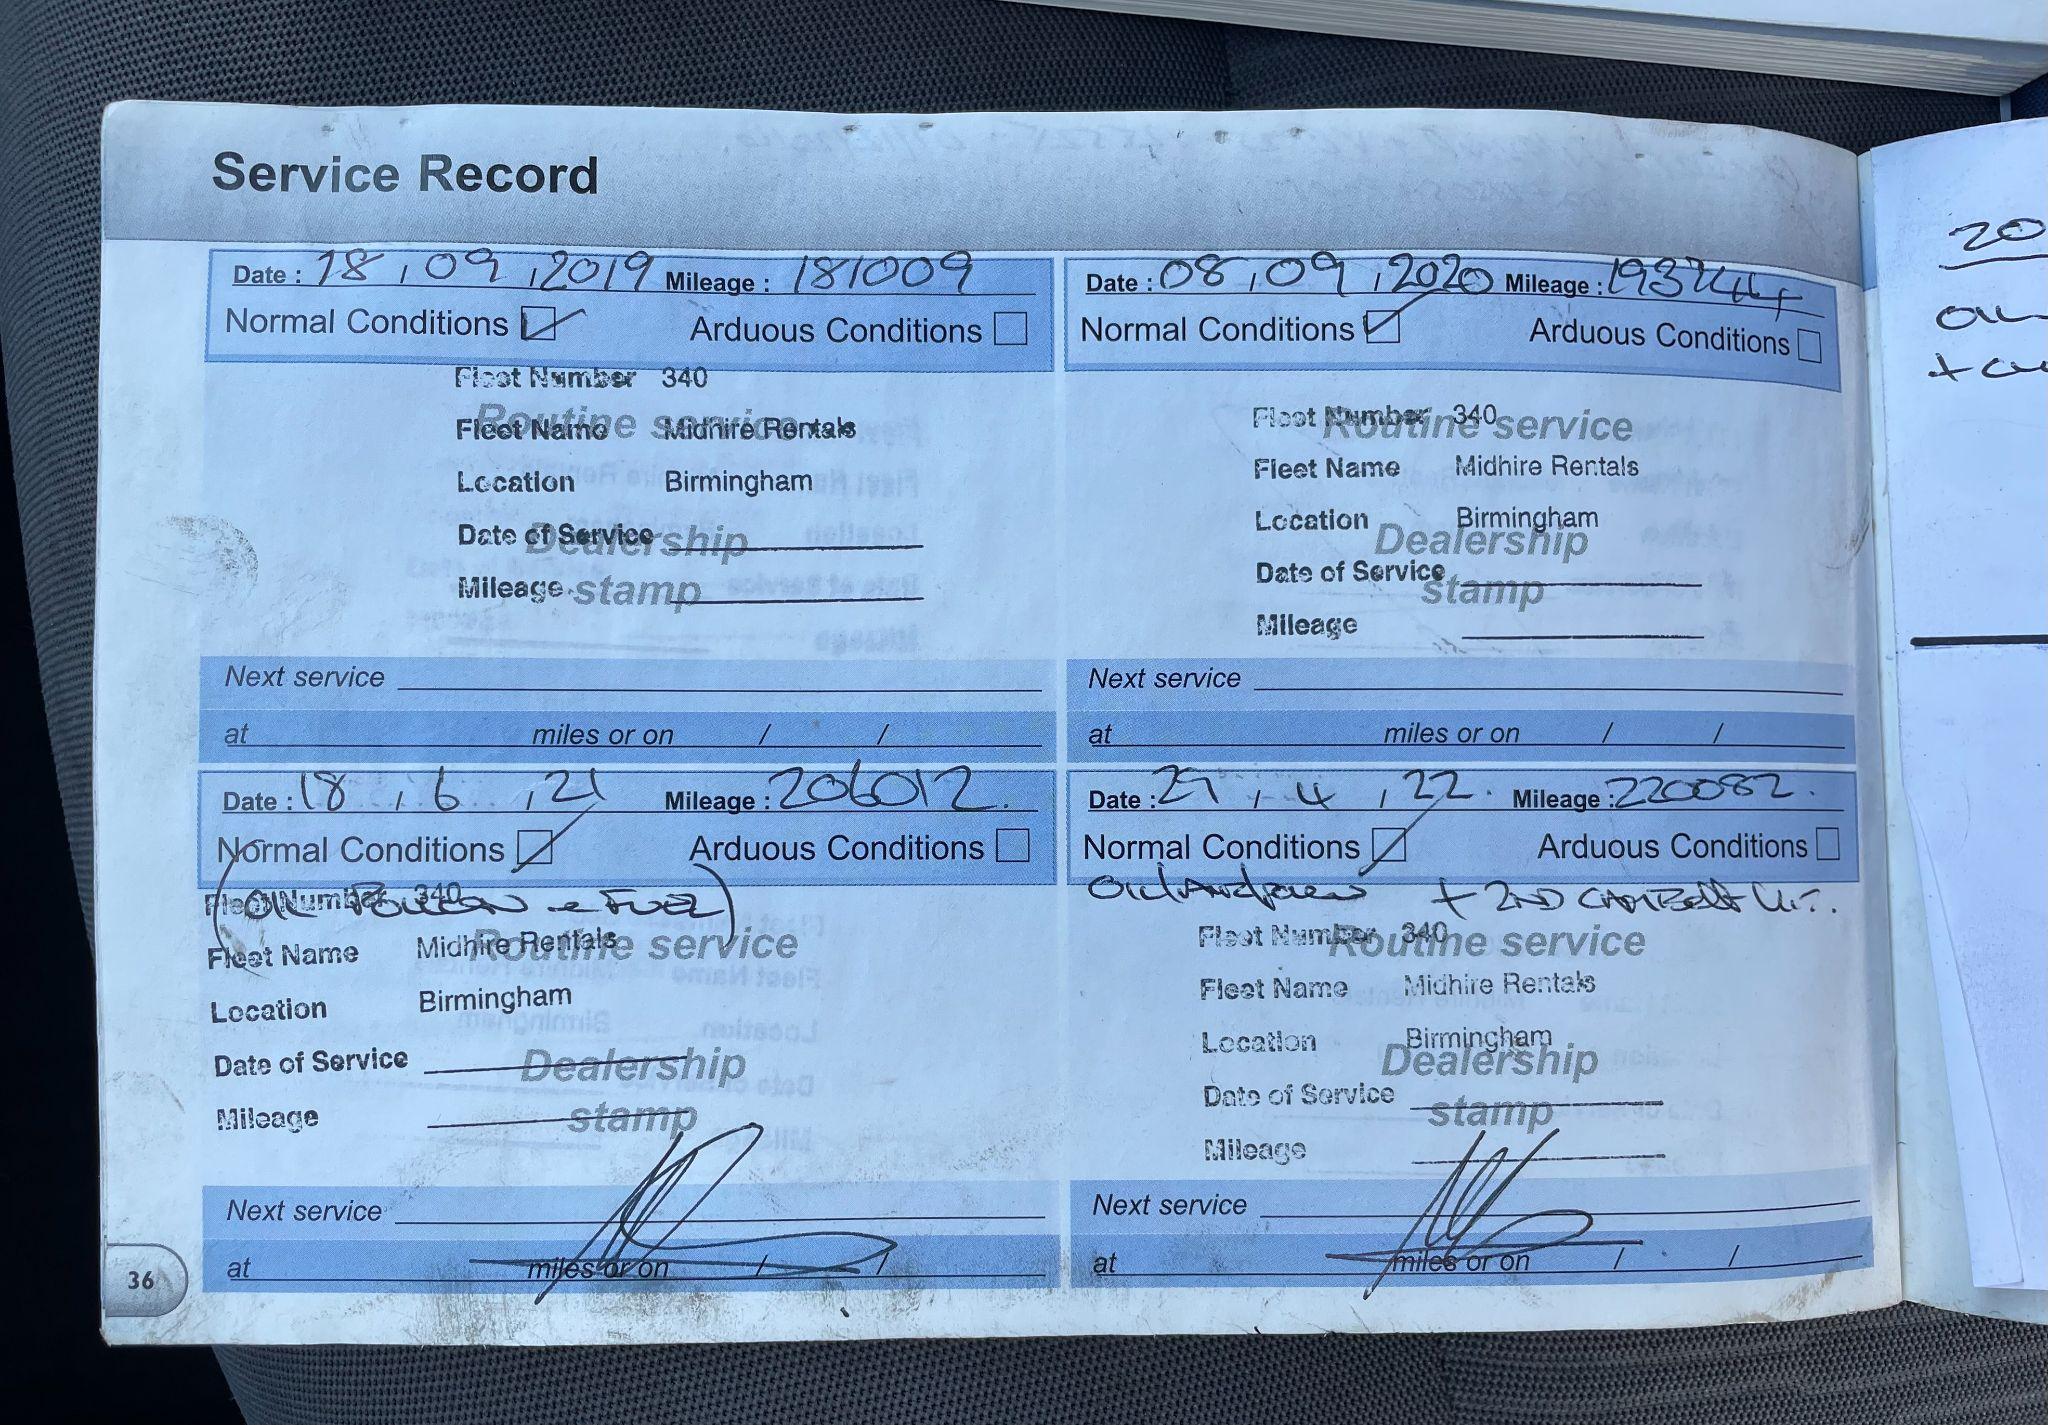 Service Record
Date : 18 , 09 , 2019 Mileage : 181009
Normal Conditions Arduous Conditions
Fleet Number 340
Routine service
Fleet Name Midhire Rentals
Location Birmingham
Date of Service
Dealership
Mileage
stamp
Next service
at miles or on / /
Date : 08 , 09 , 2020 Mileage :
Normal Conditions Arduous Conditions
Fleet Number 340
Routine service
Fleet Name Midhire Rentals
Location Birmingham
Dealership
Date of Service
stamp
Mileage
Next service
at miles or on / /
Date : 18 , 6 , 21 Mileage : 206012.
Normal Conditions Arduous Conditions
Fleet Number 340
(OIL POLLEN + FUEL)
Fleet Name Midhire Rentals
Routine service
Location Birmingham
Date of Service
Dealership
Mileage
stamp
Next service
at miles or on / /
Date : 29 , 4 , 22. Mileage : 220082.
Normal Conditions Arduous Conditions
+ 2ND CAMBELT KIT.
Fleet Number 340
Routine service
Fleet Name Midhire Rentals
Location Birmingham
Dealership
Date of Service
stamp
Mileage
Next service
at miles or on / /
36
20